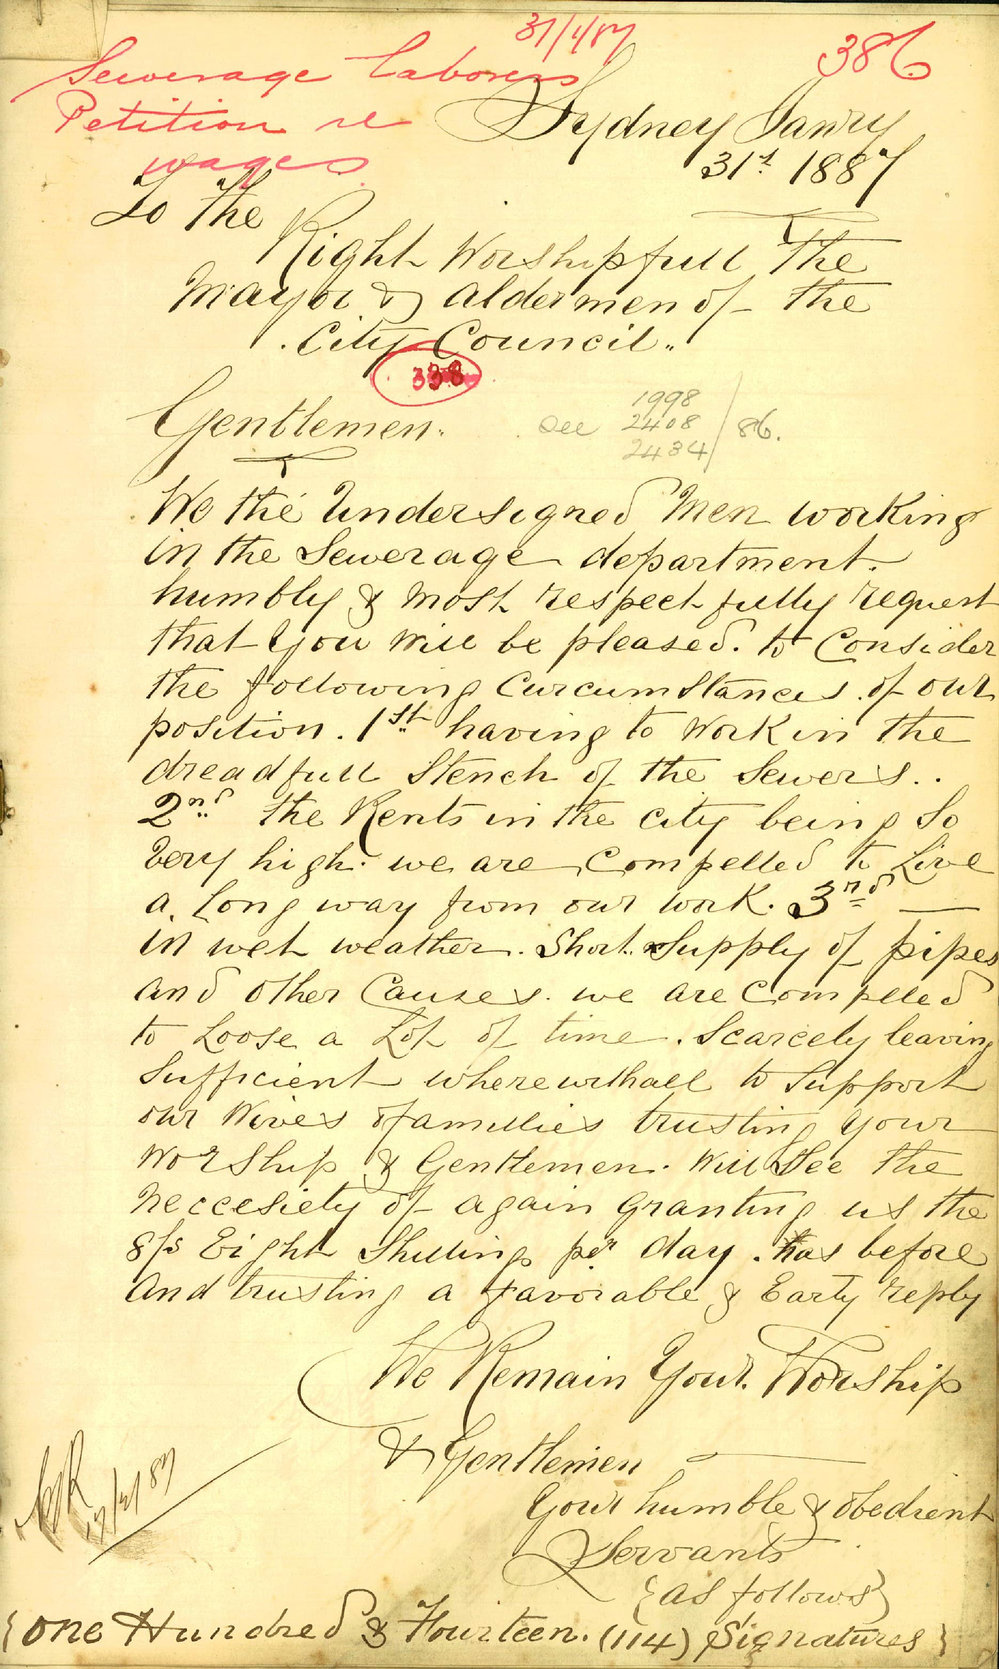 31/1/87
386
Sewerage Laborers
Petition re
wages
Sydney Janry
31st 1887
To the
Right Worshipfull The
Mayor & Aldermen of the
City Council.
338
Gentlemen.
see 1998
2408 / 86.
2434
We the Undersigned Men working
in the Sewerage department.
humbly & most respectfully request
that you will be pleased. to Consider
the following Curcumstances of our
position. 1st having to Work in the
dreadfull Stench of the Sewers..
2nd the Rents in the City being So
very high. we are Compelled to Live
a. Long way from our work. 3rd —
in wet weather. Short. Supply of pipes
and other Causes. we are Compelled
to Loose a Lot of time. Scarcely leaving
Sufficient wherewithall to Support
our Wives & famillies trusting your
Worship & Gentlemen. Will See the
Neccesiety of again granting us the
8/s Eight Shillings per day. has before
And trusting a favorable & Early reply
We Remain Your. Worship
& Gentlemen
Your humble & obedient
Servants
{as follows}
{one Hundred & Fourteen. (114) Signatures}